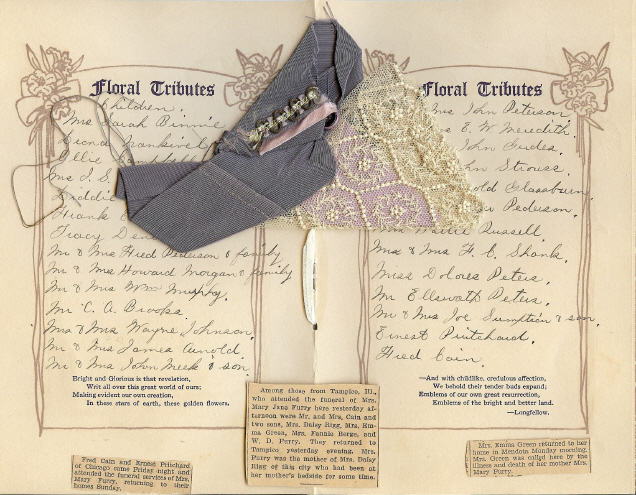 Floral Tributes
Children.
Mrs Sarah Binnie
Frank
Mr & Mrs Fred Pederson & family
Mr & Mrs Howard Morgan & family
Mr & Mrs Wm Murphy.
Mr C. A. Brooks.
Mrs & Mrs Wayne Johnson
Mr & Mrs James Arnold.
Mr & Mrs John Meek & son
Bright and Glorious is that revelation,
Writ all over this great world of ours;
Making evident our own creation,
In these stars of earth, these golden flowers.
Fred Cain and Ernest Prichard
of Chicago came Friday night and
attended the funeral services of Mrs.
Mary Furry, returning to their
homes Sunday.
Among those from Tampico, Ill.,
who attended the funeral of Mrs.
Mary Jane Furry here yesterday af-
ternoon were Mr. and Mrs. Cain and
two sons, Mrs. Daisy Rigg, Mrs. Em-
ma Green, Mrs. Fannie Berge, and
W. D. Furry. They returned to
Tampico yesterday evening. Mrs.
Furry was the mother of Mrs. Daisy
Rigg of this city who had been at
her mother's bedside for some time.
Floral Tributes
Mrs John Peterson
E. W. Meredith.
John Gudes.
John Strouss.
Glassburn.
Pederson.
Russell
Mr & Mrs F. C. Shonk.
Miss Dolores Peters,
Mr Ellswath Peters,
Mr & Mrs Joe Sumption & son,
Ernest Pritchard
Fred Cain
—And with childlike, credulous affection,
We behold their tender buds expand;
Emblems of our own great resurrection,
Emblems of the bright and better land.
—Longfellow.
Mrs. Emma Green returned to her
home in Mendota Monday morning.
Mrs. Green was called here by the
illness and death of her mother Mrs.
Mary Furry.